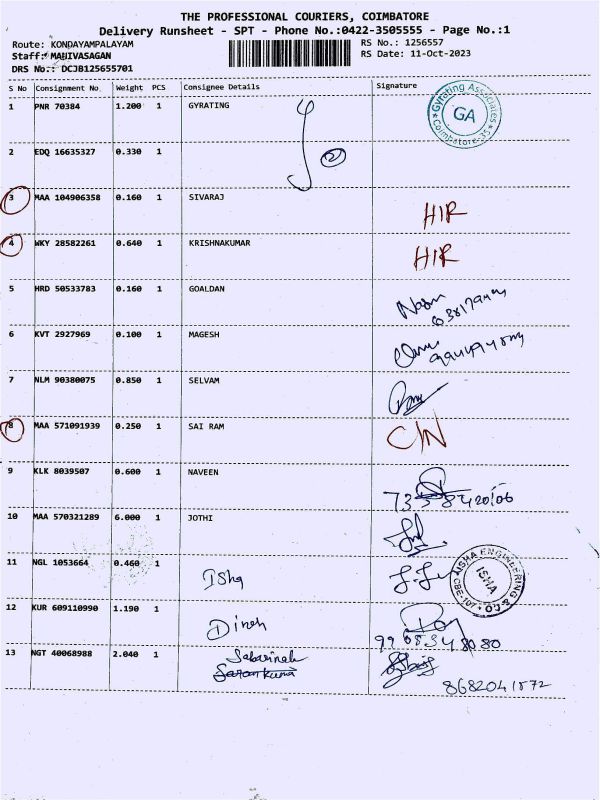 THE PROFESSIONAL COURIERS, COIMBATORE
Delivery Runsheet - SPT - Phone No.:0422-3505555 - Page No.:1
Route: KONDAYAMPALAYAM RS No.: 1256557
Staff: MANIVASAGAN RS Date: 11-Oct-2023
DRS No.: DCJB125655701
S No Consignment No Weight PCS Consignee Details Signature
1 PNR 70384 1.200 1 GYRATING Gyrating Associates GA Coimbatore-35
2 EDQ 16635327 0.330 1
3 MAA 104906358 0.160 1 SIVARAJ HIR
4 WKY 28582261 0.640 1 KRISHNAKUMAR HIR
5 HRD 50533783 0.160 1 GOALDAN
6 KVT 2927969 0.100 1 MAGESH
7 NLM 90380075 0.850 1 SELVAM
8 MAA 571091939 0.250 1 SAI RAM C/N
9 KLK 8039507 0.600 1 NAVEEN
10 MAA 570321289 6.000 1 JOTHI
11 NGL 1053664 0.460 1 Isha ISHA ENGINEERING ISHA CBE-107
12 KUR 609110990 1.190 1 Dinesh
13 NGT 40068988 2.040 1 Sabarinath
Sarankumar
8682041572